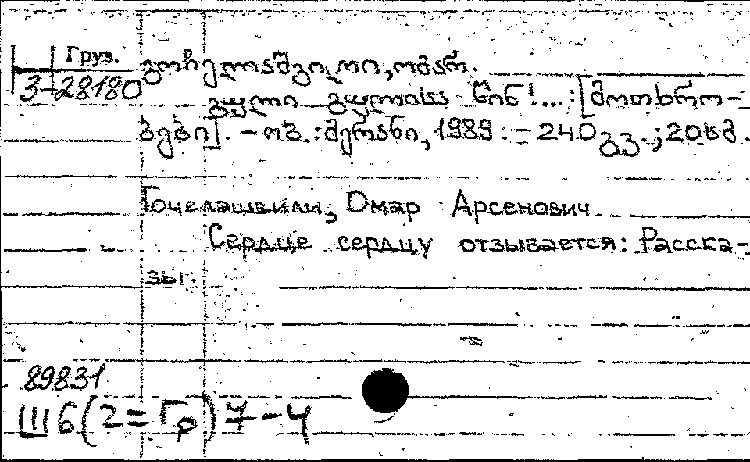 Груз.
3-28180
გოჩელაშვილი, ომარ.
გული გულისა წინ!... : [მოთხრო-
ბები]. – თბ. : მერანი, 1989. – 240 გვ. ; 20 სმ.
Гочелашвили, Омар Арсенович.
Сердце сердцу отзывается: Расска-
зы.
89831
Ш6(2=Гр)7-4